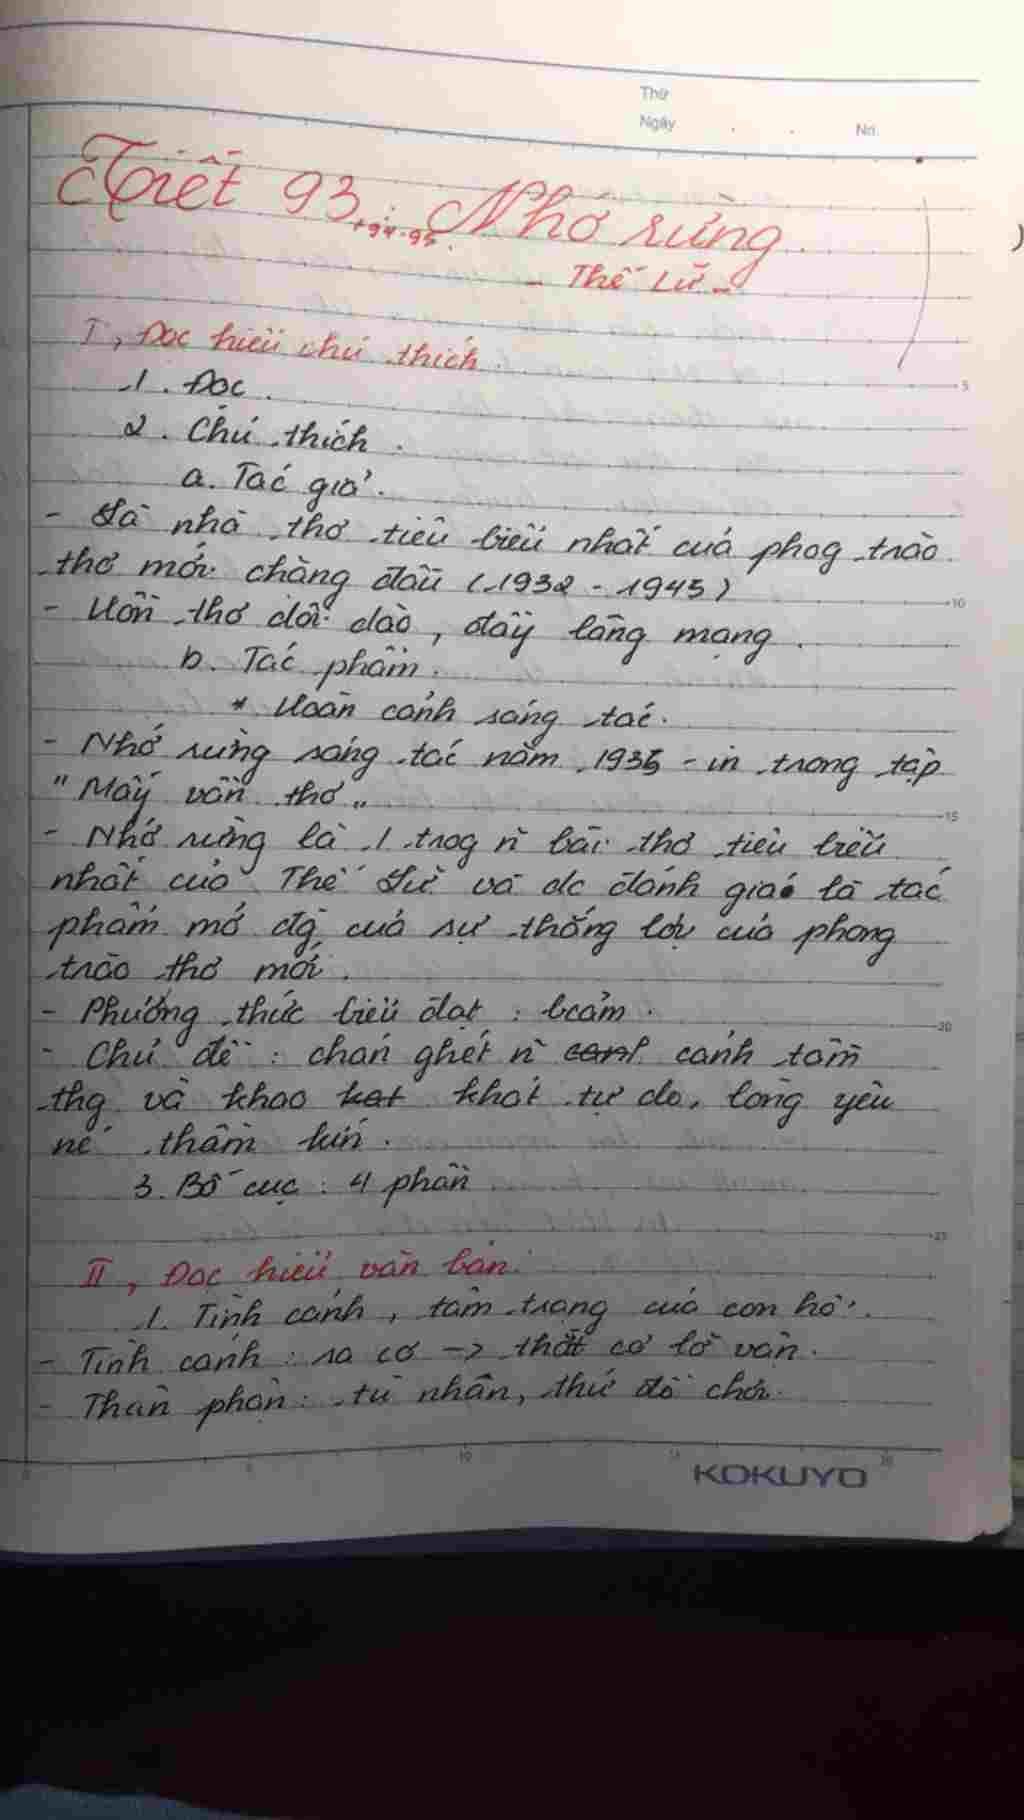 Thứ
Ngày . . No.
Tiết 93 +94+95. Nhớ rừng.
- Thế Lữ -
I, Đọc hiểu chú thích.
1. Đọc.
2. Chú thích.
a. Tác giả.
- Là nhà thơ tiêu biểu nhất của phog trào
thơ mới chặng đầu (1932 - 1945)
- Hồn thơ dồi dào, đầy lãng mạng.
b. Tác phẩm.
* Hoàn cảnh sáng tác.
- Nhớ rừng sáng tác năm 1935 - in trong tập
"Mấy vần thơ"
- Nhớ rừng là 1 trog n̄ bài thơ tiêu biểu
nhất của Thế Lữ và dc đánh giá là tác
phẩm mở đg của sự thắng lợi của phong
trào thơ mới.
- Phương thức biểu đạt : bcảm.
- Chủ đề : chán ghét n̄ cảnh tầm
thg và khao khát tự do, lòng yêu
nc thầm kín.
3. Bố cục : 4 phần
II, Đọc hiểu văn bản.
1. Tình cảnh, tâm trạng của con hổ.
- Tình cảnh : sa cơ -> thất cơ lỡ vận.
- Thân phận : tù nhân, thứ đồ chơi.
KOKUYO